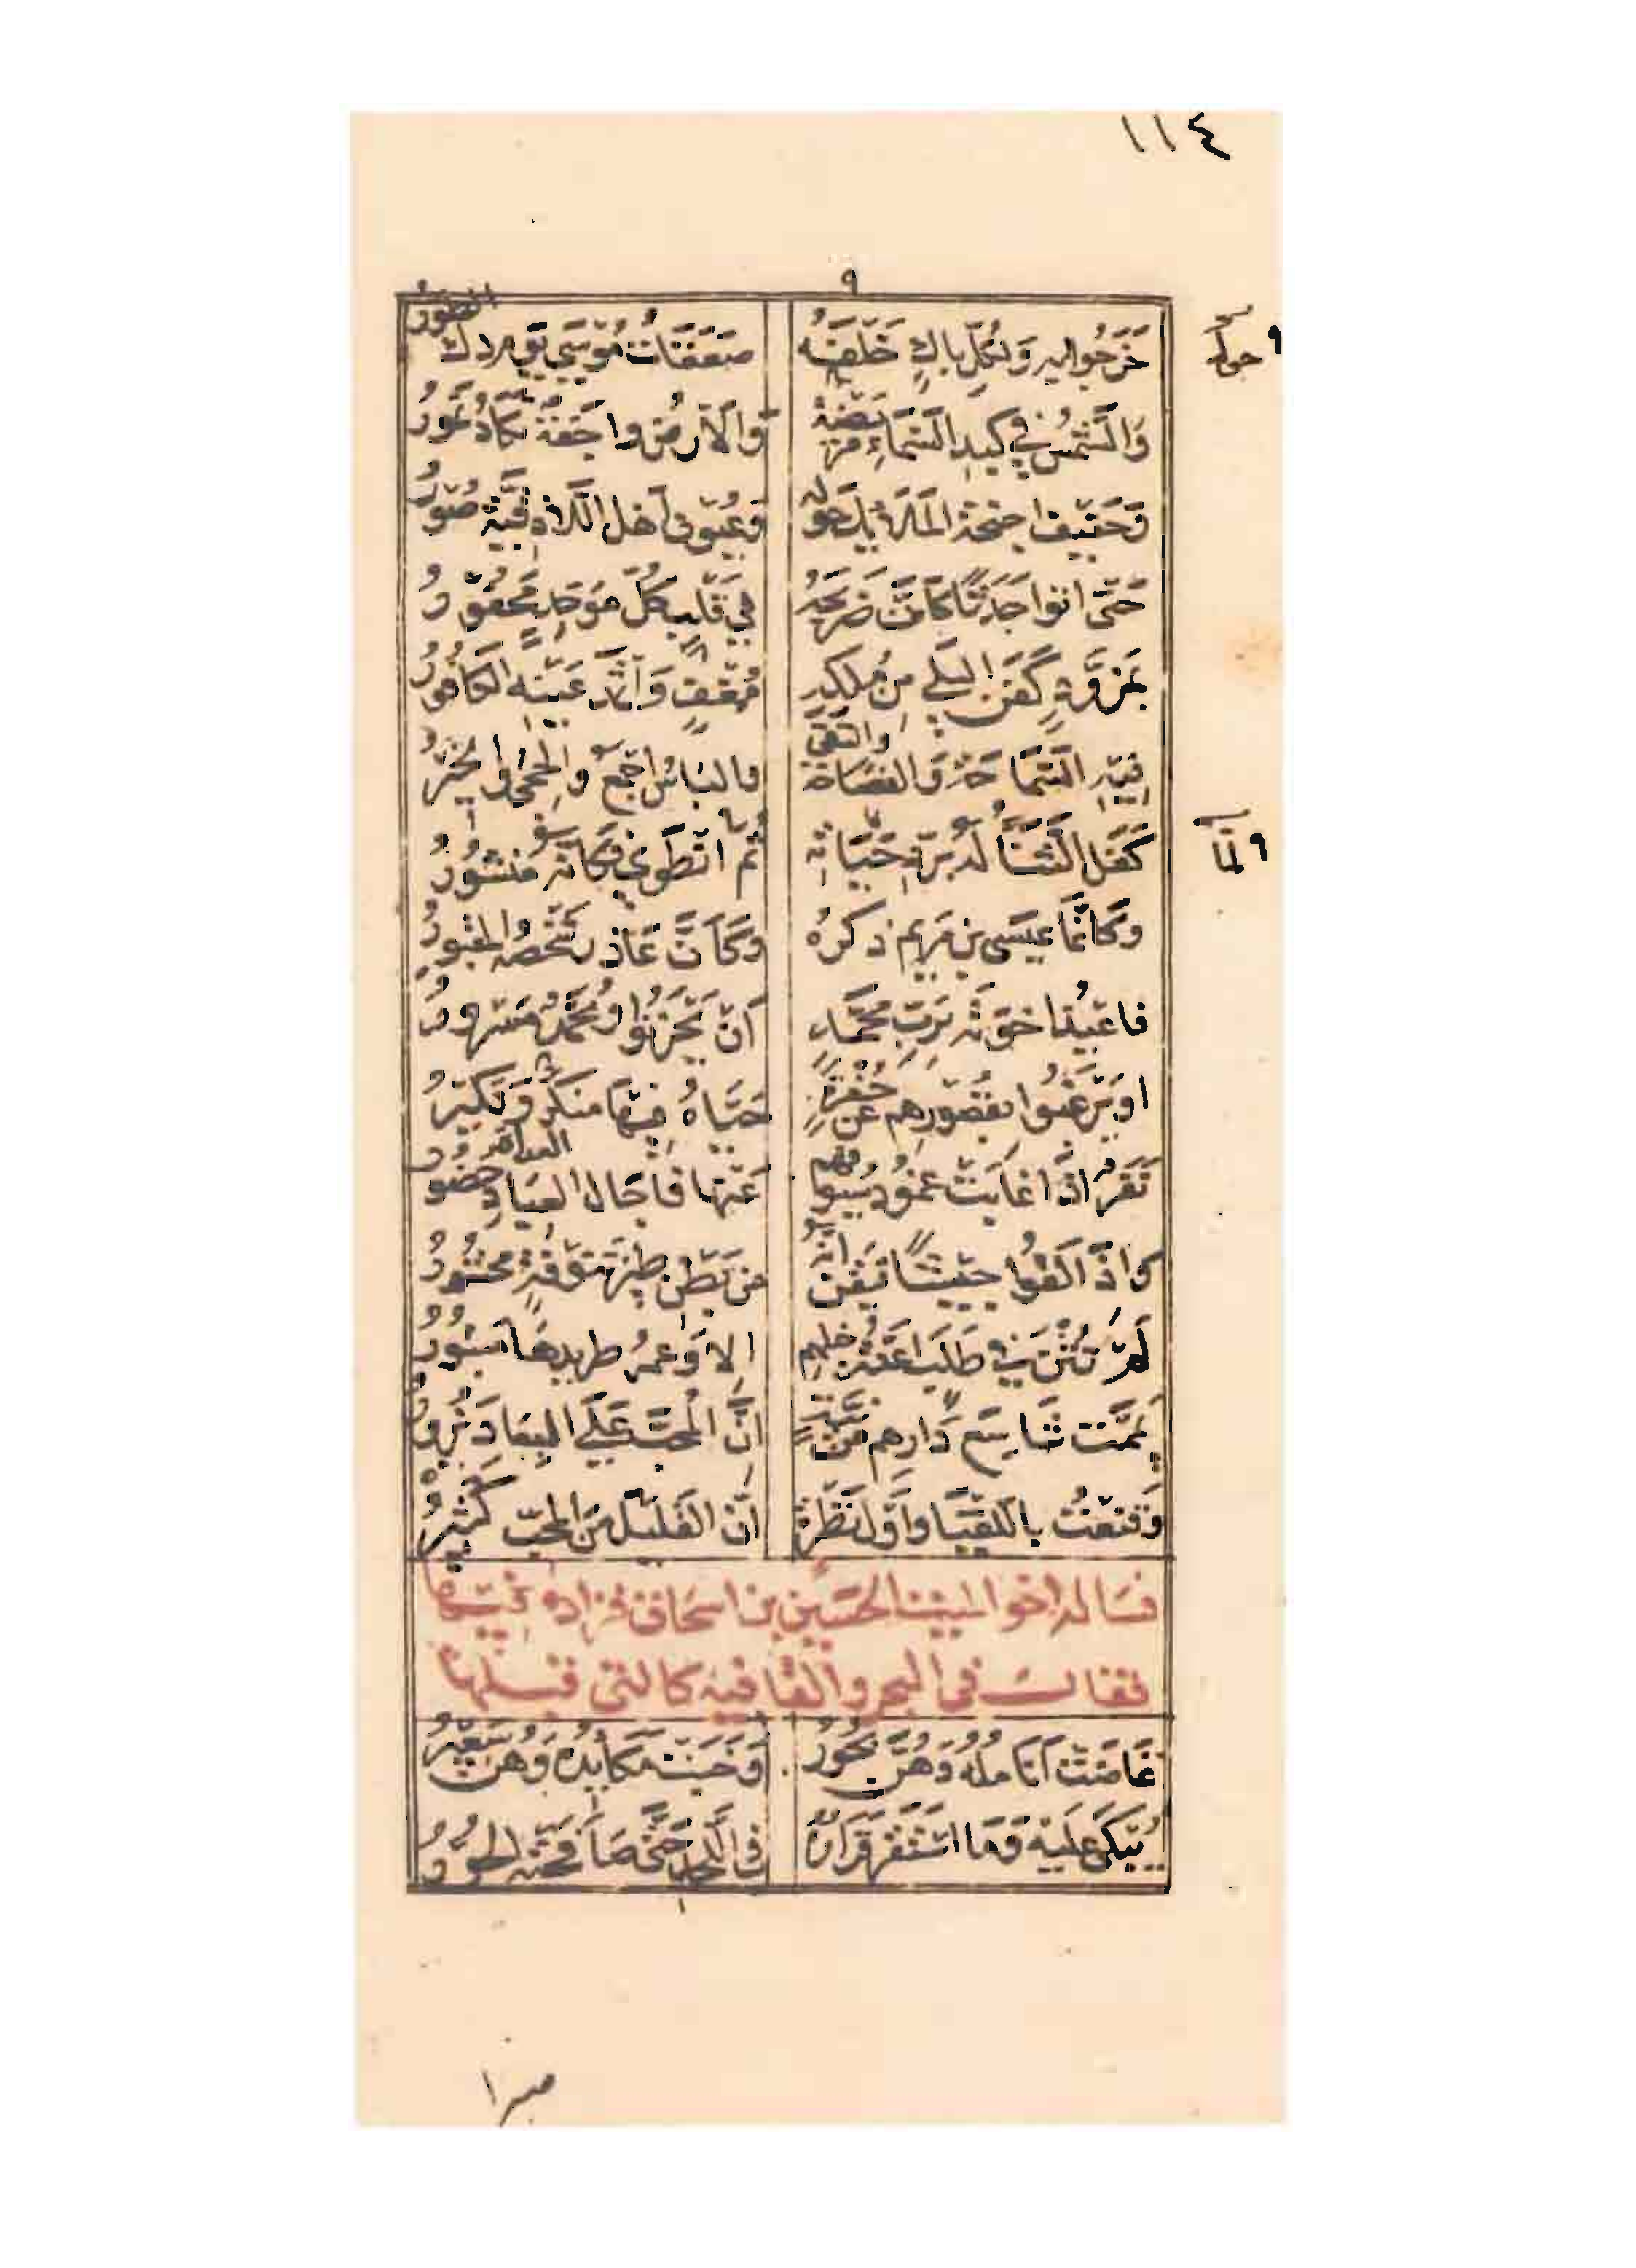 ١١٤
٩
خَرَجُوا به وَلِكُلِّ باكٍ خَلفَهُ صَعَقَاتُ مُوسَى يَومَ دك الطورُ
٩ حوله
وَالشَّمسُ في كبدِ السَّمَاءِ مَريضَةٌ وَالأَرضُ واجفَةٌ تكَادُ تَمُورُ
وَحَفِيفُ اجنحة المَلائكِ حوله وَعُيُونُ أهل اللاذقيَّة صُورُ
حَتّى اتوا جَدَثًا كَأَنَّ ضَريحَهُ في قَلبِ كلِّ مُوَحِّدٍ مَحفُورُ
بمُزَوَّدٍ كَفَنَ البِلى من مُلكِهِ مُغفٍ وَإثمِد عَينِهِ الكَافُورُ
فيهِ السَّمَاحَة وَالفصَاحَة والتقى والبَأسُ اجمَعُ والحِجى والخيرُ
كَفَل الثَّنَاءُ لَهُ بِرَدِّ حَيَاتِهِ لمّا انطَوى فَكَأنَّه مَنشُورُ
٩ لمّا
وَكَأَنَّمَا عيسَى بن مَريم ذكرُه وَكَأَنَّ عَاذرَ شَخصُه المقبورُ
فاعيذُ اخوَتَه بِرَبِّ مُحَمَّدٍ أَن يَحزَنُوا وَمُحَمَّدٌ مسرورُ
او يَرغَبُوا بقُصُورِهِم عن حُفرَةٍ حَيَّاهُ فيهَا منكَرٌ وَنَكِيرُ
نَفَرٌ اذَا غابَت غُمُودُ سُيُوفِهم عَنها فآجال العبَادِ حضورُ
وَاذَا لَقُوا جَيشًا تَيَقَّنَ أنَّه من بَطنِ طَيرِ تَنُوفَةٍ محشُورُ
لَم تُثنَ في طَلَبٍ أعِنَّةُ خيلهم الا وَعمرُ طريدهَا مَبتُورُ
يَمَّمتُ شَاسِعَ دَارِهم عَن نِيَّةٍ إنَّ المُحِبَّ عَلَى البِعَادِ يَزُورُ
وَقَنِعتُ باللُّقيَا وأوَّل نَظرَةٍ إنَّ القَليلَ مِنَ المحبّ كَثيرُ
فسَاله اخو الميت الحسَين بن اسحاق زيادة فيها
فقال في البحر والقافية كالتي قبلها
غَاضَت أنَامِلُهُ وَهُنَّ بُحُورُ وَخَبَت مَكَايِدُه وَهُنَّ سَعيرُ
يُبكَى عَلَيهِ وَمَا استَقَرَّ قَرَارُه في اللّحدِ حَتّى صَافَحَته الحُورُ
صبرا